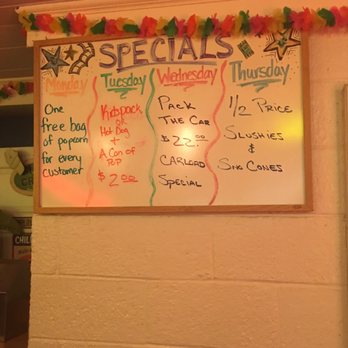 SPECIALS
Monday
One
free bag
of popcorn
for every
customer
Tuesday
Kidspack
or
Hot Dog
+
A Can of
Pop
$2.00
Wednesday
Pack
The Car
$22.00
CARLOAD
Special
Thursday
1/2 Price
Slushies
&
Sno Cones
CHILI